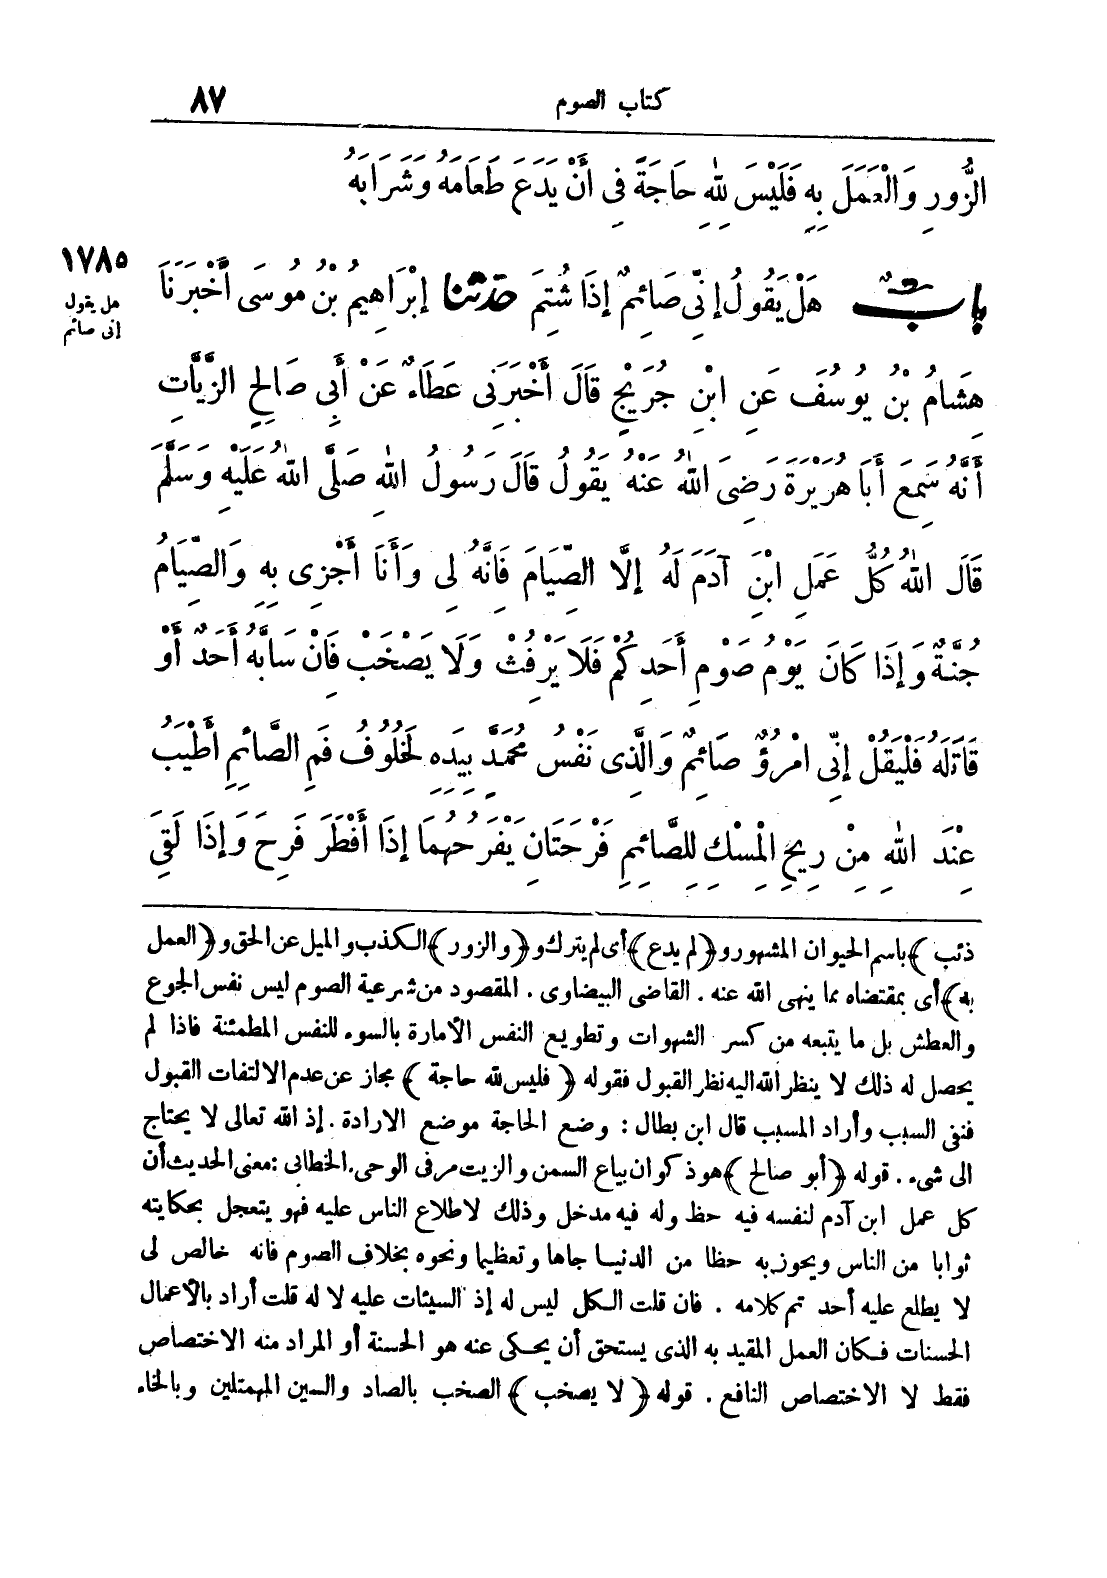 كتاب الصوم ٨٧
الزُّورِ وَالْعَمَلَ بِهِ فَلَيْسَ لِلّٰهِ حَاجَةٌ فِى أَنْ يَدَعَ طَعَامَهُ وَشَرَابَهُ
بابٌ هَلْ يَقُولُ إِنِّى صَائِمٌ إِذَا شُتِمَ حَدَّثَنَا إِبْرَاهِيمُ بْنُ مُوسَى أَخْبَرَنَا
١٧٨٥
هل يقول
إنى صائم
هِشَامُ بْنُ يُوسُفَ عَنِ ابْنِ جُرَيْجٍ قَالَ أَخْبَرَنِى عَطَاءٌ عَنْ أَبِى صَالِحٍ الزَّيَّاتِ
أَنَّهُ سَمِعَ أَبَا هُرَيْرَةَ رَضِىَ اللهُ عَنْهُ يَقُولُ قَالَ رَسُولُ اللهِ صَلَّى اللهُ عَلَيْهِ وَسَلَّمَ
قَالَ اللهُ كُلُّ عَمَلِ ابْنِ آدَمَ لَهُ إِلَّا الصِّيَامَ فَانَّهُ لِى وَأَنَا أَجْزِى بِهِ وَالصِّيَامُ
جُنَّةٌ وَإِذَا كَانَ يَوْمُ صَوْمِ أَحَدِكُمْ فَلَا يَرْفُثْ وَلَا يَصْخَبْ فَانْ سَابَّهُ أَحَدٌ أَوْ
قَاتَلَهُ فَلْيَقُلْ إِنِّى امْرُؤٌ صَائِمٌ وَالَّذِى نَفْسُ مُحَمَّدٍ بِيَدِهِ لَخُلُوفُ فَمِ الصَّائِمِ أَطْيَبُ
عِنْدَ اللهِ مِنْ رِيحِ الْمِسْكِ لِلصَّائِمِ فَرْحَتَانِ يَفْرَحُهُمَا إِذَا أَفْطَرَ فَرِحَ وَإِذَا لَقِىَ
ذئب ﴾ باسم الحيوان المشهور و ﴿ لم يدع ﴾ أى لم يترك و ﴿ والزور ﴾ الكذب والميل عن الحق و ﴿ العمل
به ﴾ أى بمقتضاه مما ينهى الله عنه . القاضى البيضاوى . المقصود من شرعية الصوم ليس نفس الجوع
والعطش بل ما يتبعه من كسر الشهوات وتطويع النفس الأمارة بالسوء للنفس المطمئنة فاذا لم
يحصل له ذلك لا ينظر الله اليه نظر القبول فقوله ﴿ فليس لله حاجة ﴾ مجاز عن عدم الالتفات القبول
فنفى السبب وأراد المسبب قال ابن بطال : وضع الحاجة موضع الارادة . إذ الله تعالى لا يحتاج
الى شىء . قوله ﴿ أبو صالح ﴾ هو ذكوان بياع السمن والزيت مر فى الوحى . الخطابى : معنى الحديث أن
كل عمل ابن آدم لنفسه فيه حظ وله فيه مدخل وذلك لاطلاع الناس عليه فهو يتعجل بحكايته
ثوابا من الناس ويحوز به حظا من الدنيا جاها وتعظيما ونحوه بخلاف الصوم فانه خالص لى
لا يطلع عليه أحد تم كلامه . فان قلت الكل ليس له إذ السيئات عليه لا له قلت أراد بالأعمال
الحسنات فكان العمل المقيد به الذى يستحق أن يحكى عنه هو الحسنة أو المراد منه الاختصاص
فقط لا الاختصاص النافع . قوله ﴿ لا يصخب ﴾ الصخب بالصاد والسين المهمتلين وبالخاء